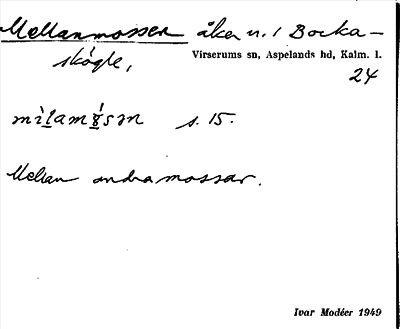 Mellanmossen åker n. / Bocka-
skögle,
Virserums sn, Aspelands hd, Kalm. l.
24
s. 15.
Mellan andra mossar.
Ivar Modéer 1949